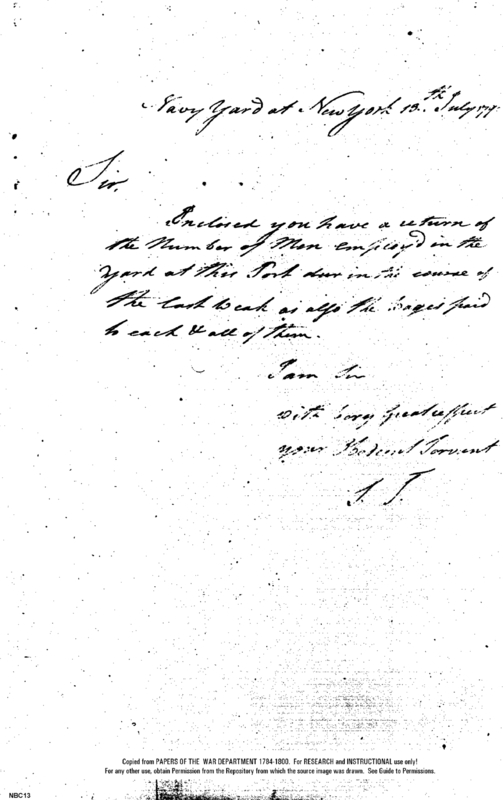 Navy Yard at New York 13th July 179
Sir,
Enclosed you have a return of
the Number of Men employ'd in the
Yard at this Port durin the course of
the last Weak as also the Wages paid
to each & all of them.
I am Sir
with very Great respect
your Servent
Copied from PAPERS OF THE WAR DEPARTMENT 1784-1800. For RESEARCH and INSTRUCTIONAL use only!
For any other use, obtain Permission from the Repository from which the source image was drawn. See Guide to Permissions.
NBC13